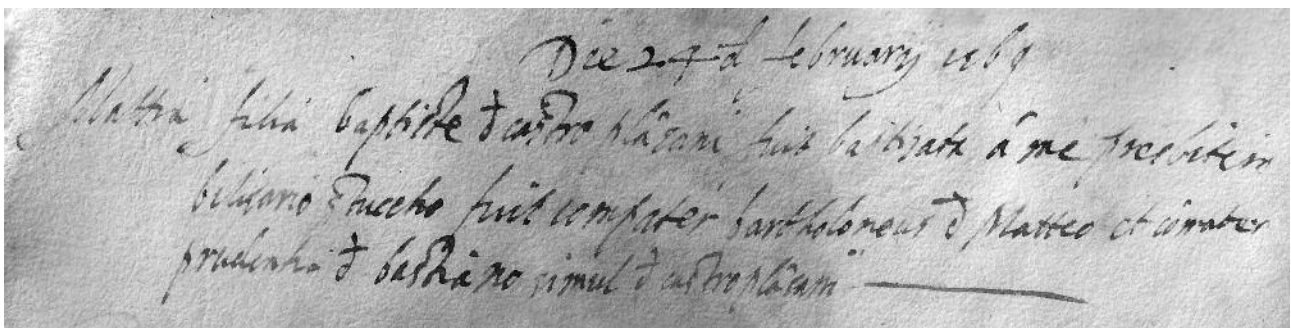 Die 24 d februarij 1569
Mattia filia baptiste d castro plasani fuit batisata a me presbitero
belisario Stuccho fuit compater bartholomeus d Matteo et comater
prudentia d bastiano simul d castroplasani